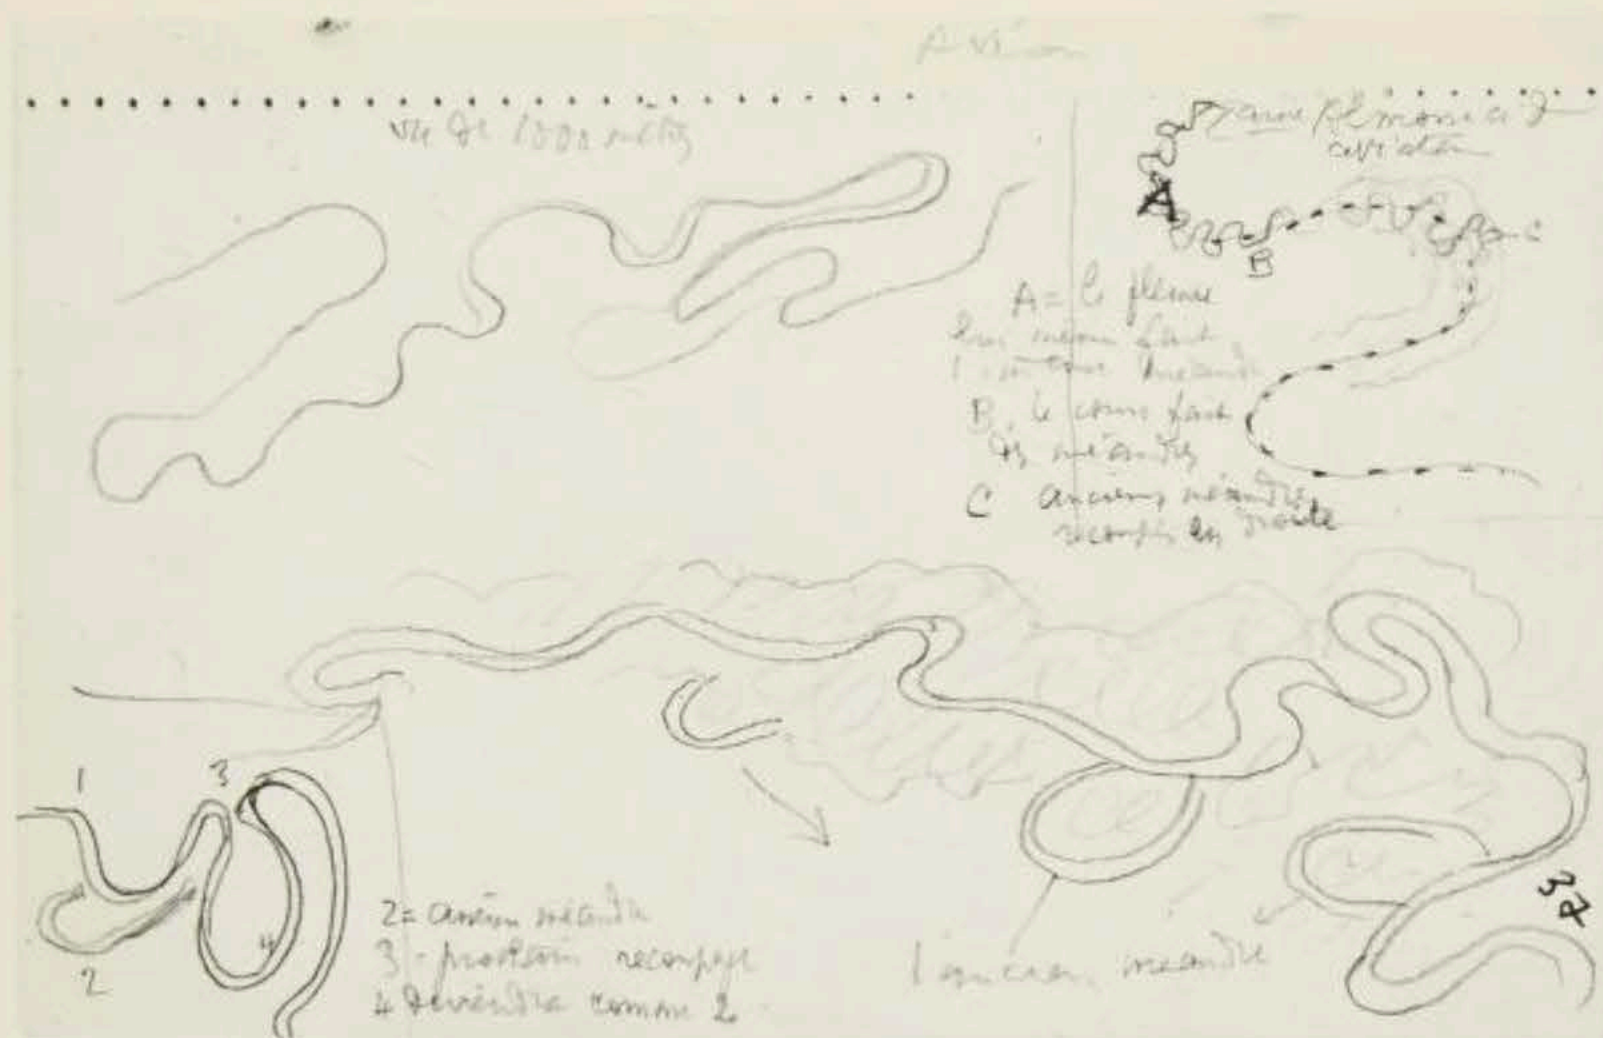 Avion
vu de 1000 mètres
aviation
A
B
C
A = le fleuve
lui même fait
méandre
B. le cours fait
des méandres
C anciens méandres
recoupés en droite
1
3
2
4
37
2 = ancien méandre
3 - prochain recoupage
4 deviendra comme 2
1 ancien méandre